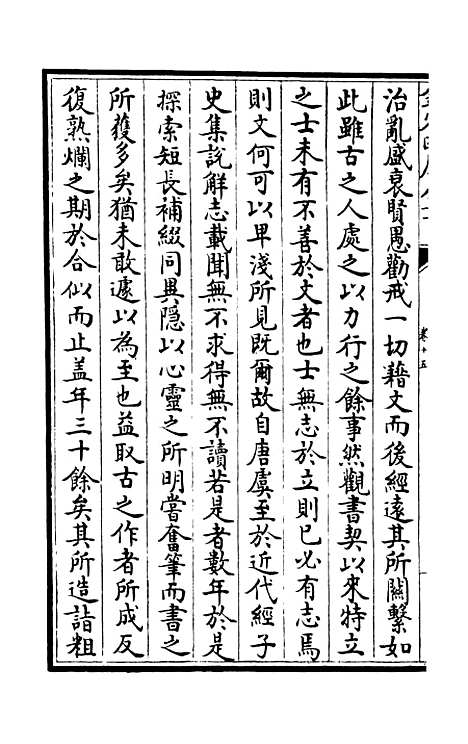 治亂盛衰賢愚勸戒一切藉文而後經遠其所關繫如
此雖古之人處之以力行之餘事然觀書契以來特立
之士未有不善於文者也士無志於立則已必有志焉
則文何可以卑淺所見既爾故自唐虞至於近代經子
史集說解志載聞無不求得無不讀若是者數年於是
探索短長補綴同異隱以心靈之所明嘗奮筆而書之
所獲多矣猶未敢遽以為至也益取古之作者所成反
復熟爛之期於合似而止盖年三十餘矣其所造詣粗
卷十五